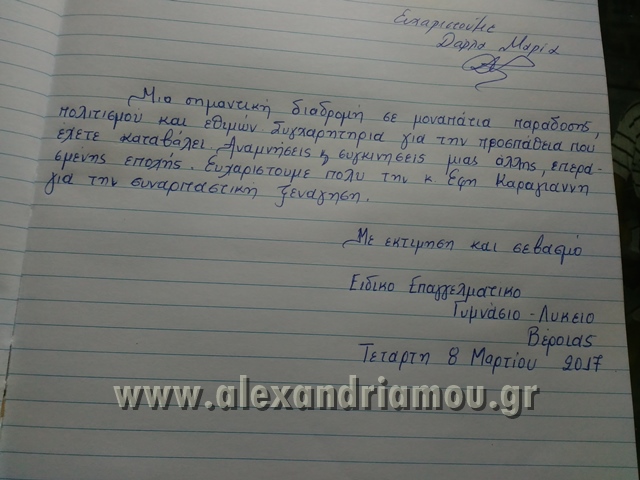 Ευχαριστούμε
Δαρλα Μαρία
Μια σημαντική διαδρομή σε μονοπάτια παράδοσης,
πολιτισμού και εθιμών Συγχαρητήρια για την προσπάθεια που
έχετε καταβάλει. Αναμνήσεις & συγκινήσεις μιας άλλης, επερα-
σμένης εποχής. Ευχαριστουμε πολυ την κ. Εφη Καραγιαννη
για την συναρπαστική ξενάγηση.
Με εκτιμηση και σεβασμό
Ειδικο Επαγγελματικο
Γυμνάσιο - Λυκειο
Βέροιας
Τεταρτη 8 Μαρτίου 2017
www.alexandriamou.gr